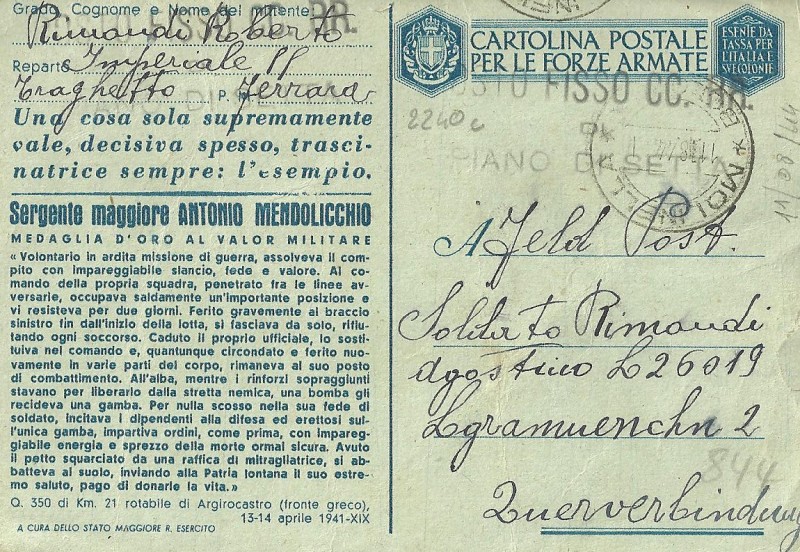 Grado Cognome e Nome del mittente
Rimondi Roberto
Reparto Imperiale
Traghetto P. M. Ferrara
Una cosa sola supremamente
vale, decisiva spesso, trasci-
natrice sempre: l'esempio.
Sergente maggiore ANTONIO MENDOLICCHIO
MEDAGLIA D'ORO AL VALOR MILITARE
« Volontario in ardita missione di guerra, assolveva il com-
pito con impareggiabile slancio, fede e valore. Al co-
mando della propria squadra, penetrato fra le linee av-
versarie, occupava saldamente un'importante posizione e
vi resisteva per due giorni. Ferito gravemente al braccio
sinistro fin dall'inizio della lotta, si fasciava da solo, rifiu-
tando ogni soccorso. Caduto il proprio ufficiale, lo sosti-
tuiva nel comando e, quantunque circondato e ferito nuo-
vamente in varie parti del corpo, rimaneva al suo posto
di combattimento. All'alba, mentre i rinforzi sopraggiunti
stavano per liberarlo dalla stretta nemica, una bomba gli
recideva una gamba. Per nulla scosso nella sua fede di
soldato, incitava i dipendenti alla difesa ed erettosi sul-
l'unica gamba, impartiva ordini, come prima, con impareg-
giabile energia e sprezzo della morte ormai sicura. Avuto
il petto squarciato da una raffica di mitragliatrice, si ab-
batteva al suolo, inviando alla Patria lontana il suo estre-
mo saluto, pago di donarle la vita. »
Q. 350 di Km. 21 rotabile di Argirocastro (fronte greco),
13-14 aprile 1941-XIX
A CURA DELLO STATO MAGGIORE R. ESERCITO
CARTOLINA POSTALE
PER LE FORZE ARMATE
ESENTE DA
TASSA PER
L'ITALIA E
SUE COLONIE
POSTO FISSO CC. RR.
PIANO DI SETTA
2240
11/08/44
MOLINELLA
A Feld Post.
Soldato Rimondi
Agostino L 26019
Lgramuenchn 2
844
Querverbindung